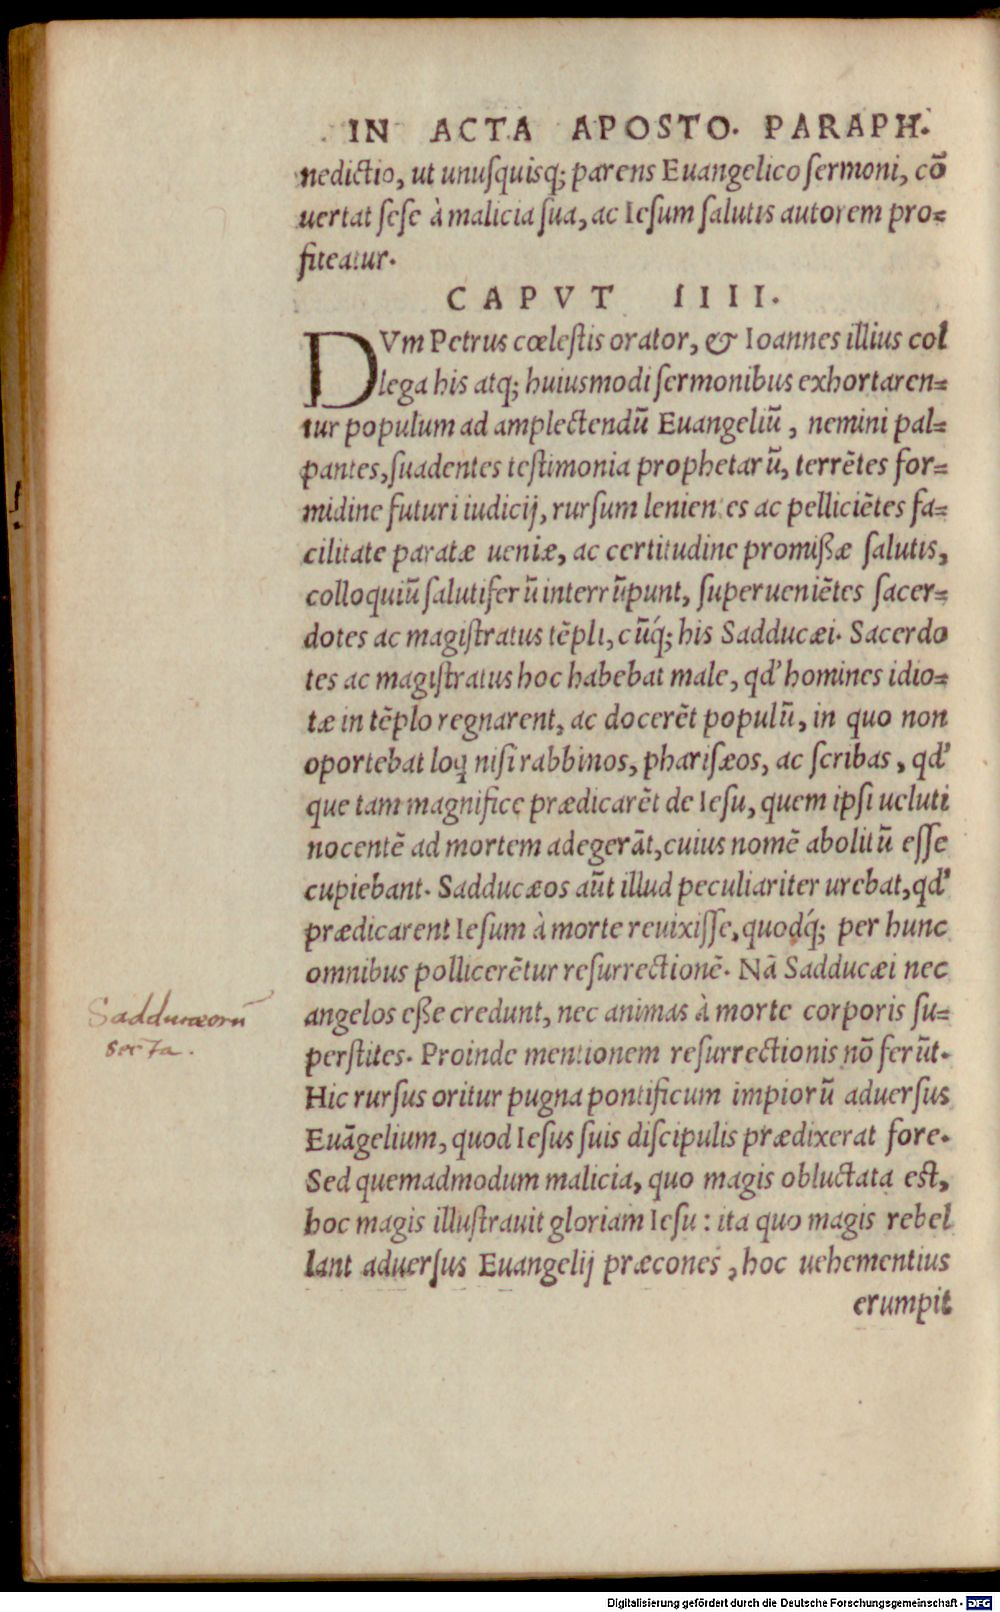 IN ACTA APOSTO. PARAPH.
nedictio, ut unuſquisq; parens Euangelico ſermoni, cō
uertat ſeſe à malicia ſua, ac Ieſum ſalutis autorem pro=
fiteatur.
CAPVT IIII.
DVm Petrus cœleſtis orator, & Ioannes illius col
lega his atq; huiusmodi ſermonibus exhortaren=
tur populum ad amplectendū Euangeliū, nemini pal=
pantes, ſuadentes teſtimonia prophetarū, terrētes for=
midine futuri iudicij, rurſum lenientes ac pelliciētes fa=
cilitate paratæ ueniæ, ac certitudine promißæ ſalutis,
colloquiū ſalutiferū interrūpunt, ſuperueniētes ſacer=
dotes ac magiſtratus tēpli, cūq́; his Sadducæi. Sacerdo
tes ac magiſtratus hoc habebat male, qd' homines idio=
tæ in tēplo regnarent, ac docerēt populū, in quo non
oportebat loq niſi rabbinos, phariſæos, ac ſcribas, qd'
que tam magnifice prædicarēt de Ieſu, quem ipſi ueluti
nocentē ad mortem adegerāt, cuius nomē abolitū eſſe
cupiebant. Sadducæos aūt illud peculiariter urebat, qd'
prædicarent Ieſum à morte reuixiſſe, quodq́; per hunc
omnibus pollicerētur reſurrectionē. Nā Sadducæi nec
angelos eße credunt, nec animas à morte corporis ſu=
perſtites. Proinde mentionem reſurrectionis nō ferūt.
Hic rurſus oritur pugna pontificum impiorū aduerſus
Euāgelium, quod Ieſus ſuis diſcipulis prædixerat fore.
Sed quemadmodum malicia, quo magis obluctata eſt,
hoc magis illuſtrauit gloriam Ieſu : ita quo magis rebel
lant aduerſus Euangelij præcones, hoc uehementius
erumpit
Sadducæorū
secta.
Digitalisierung gefördert durch die Deutsche Forschungsgemeinschaft - DFG